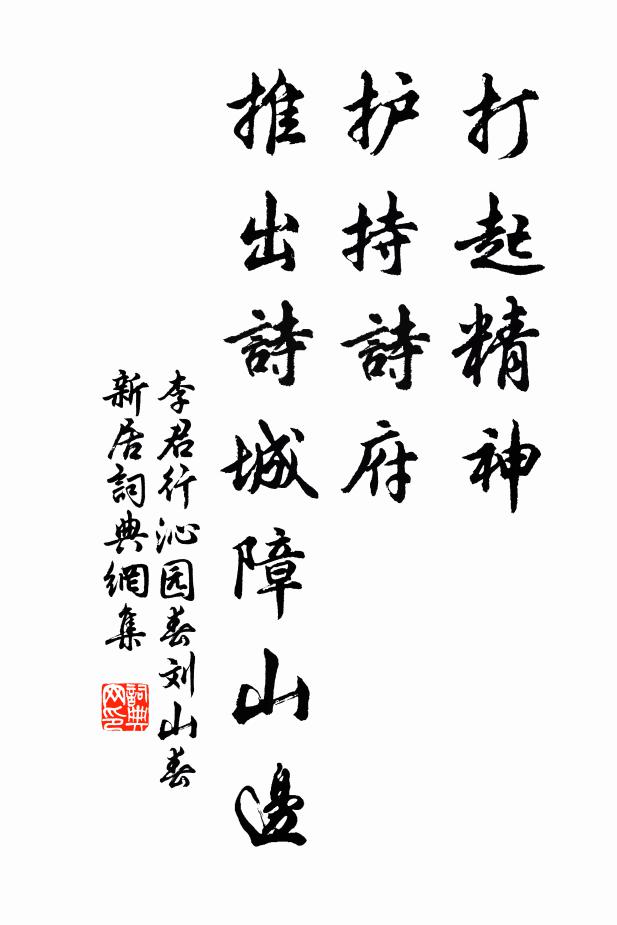 打起精神
护持詩府
推出詩城障山邊
李君行沁园春刘山春
新居詞典網集
詞典网印